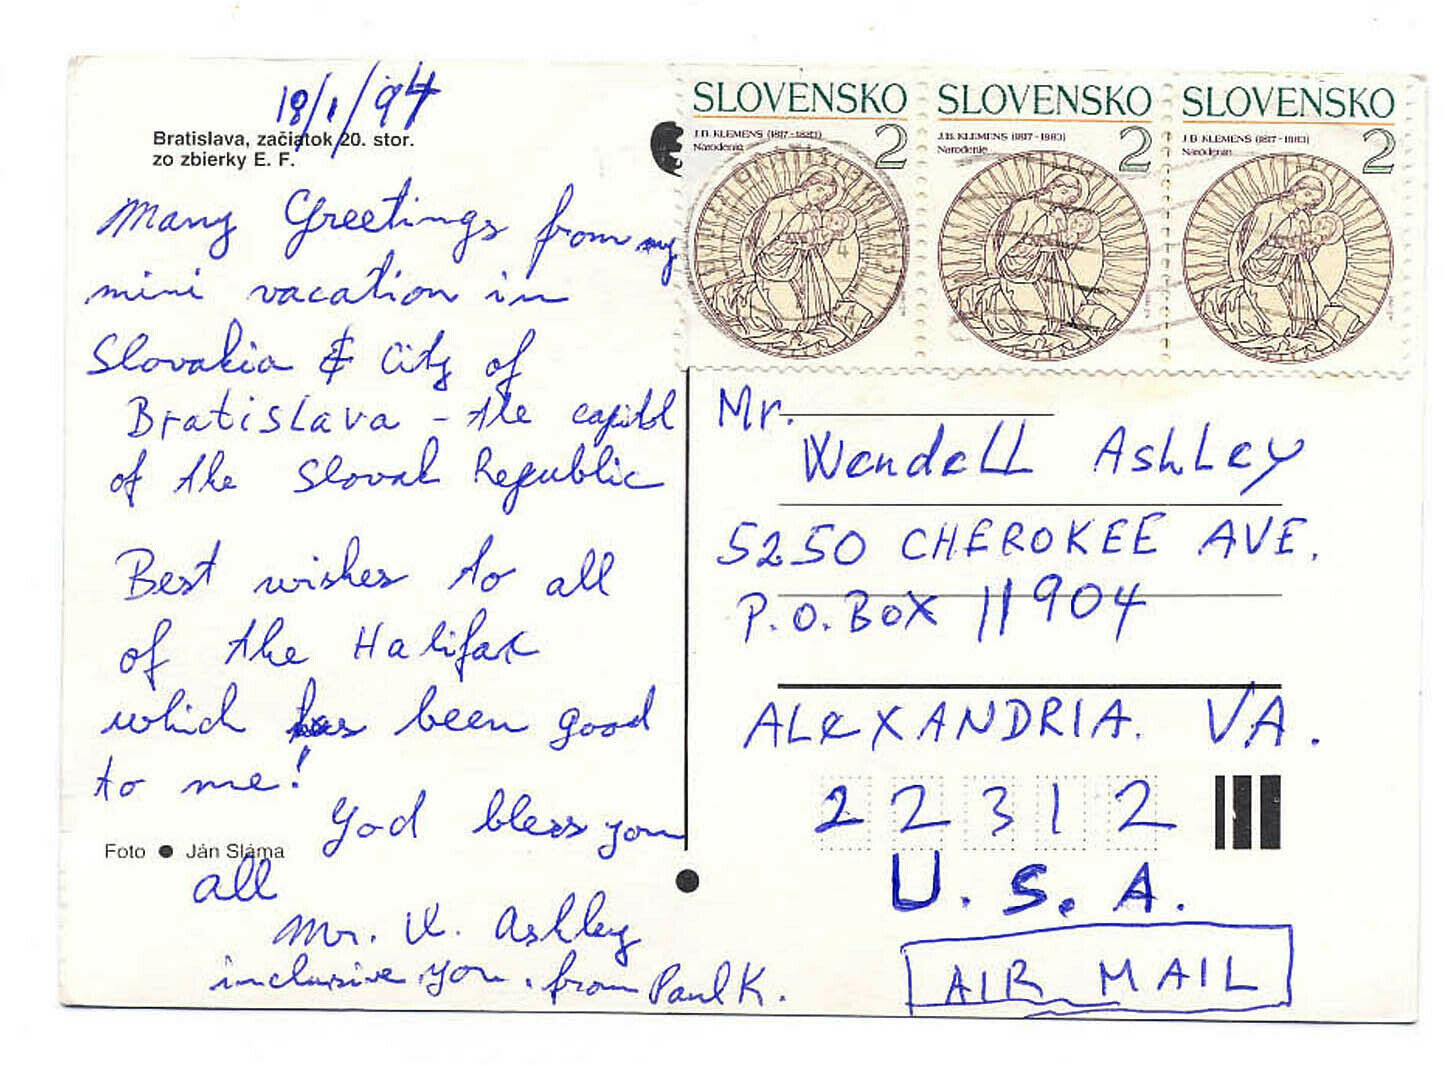 18/1/94
Bratislava, začiatok 20. stor.
zo zbierky E. F.
Many Greetings from my
mini vacation in
Slovakia & City of
Bratislava - the capitol
of the Slovak Republic
Best wishes to all
of the Halifax
which has been good
to me!
God bless you
all
Mr. W. Ashley
inclusive you. from Paul K.
Foto ● Ján Sláma
SLOVENSKO
J. B. KLEMENS (1817-1883)
Narodenie
2
SLOVENSKO
J. B. KLEMENS (1817-1883)
Narodenie
2
SLOVENSKO
J. B. KLEMENS (1817-1883)
Narodenie
2
Mr.
Wendell Ashley
5250 CHEROKEE AVE.
P.O. BOX 11904
ALEXANDRIA. VA.
22312
U.S.A.
AIR MAIL